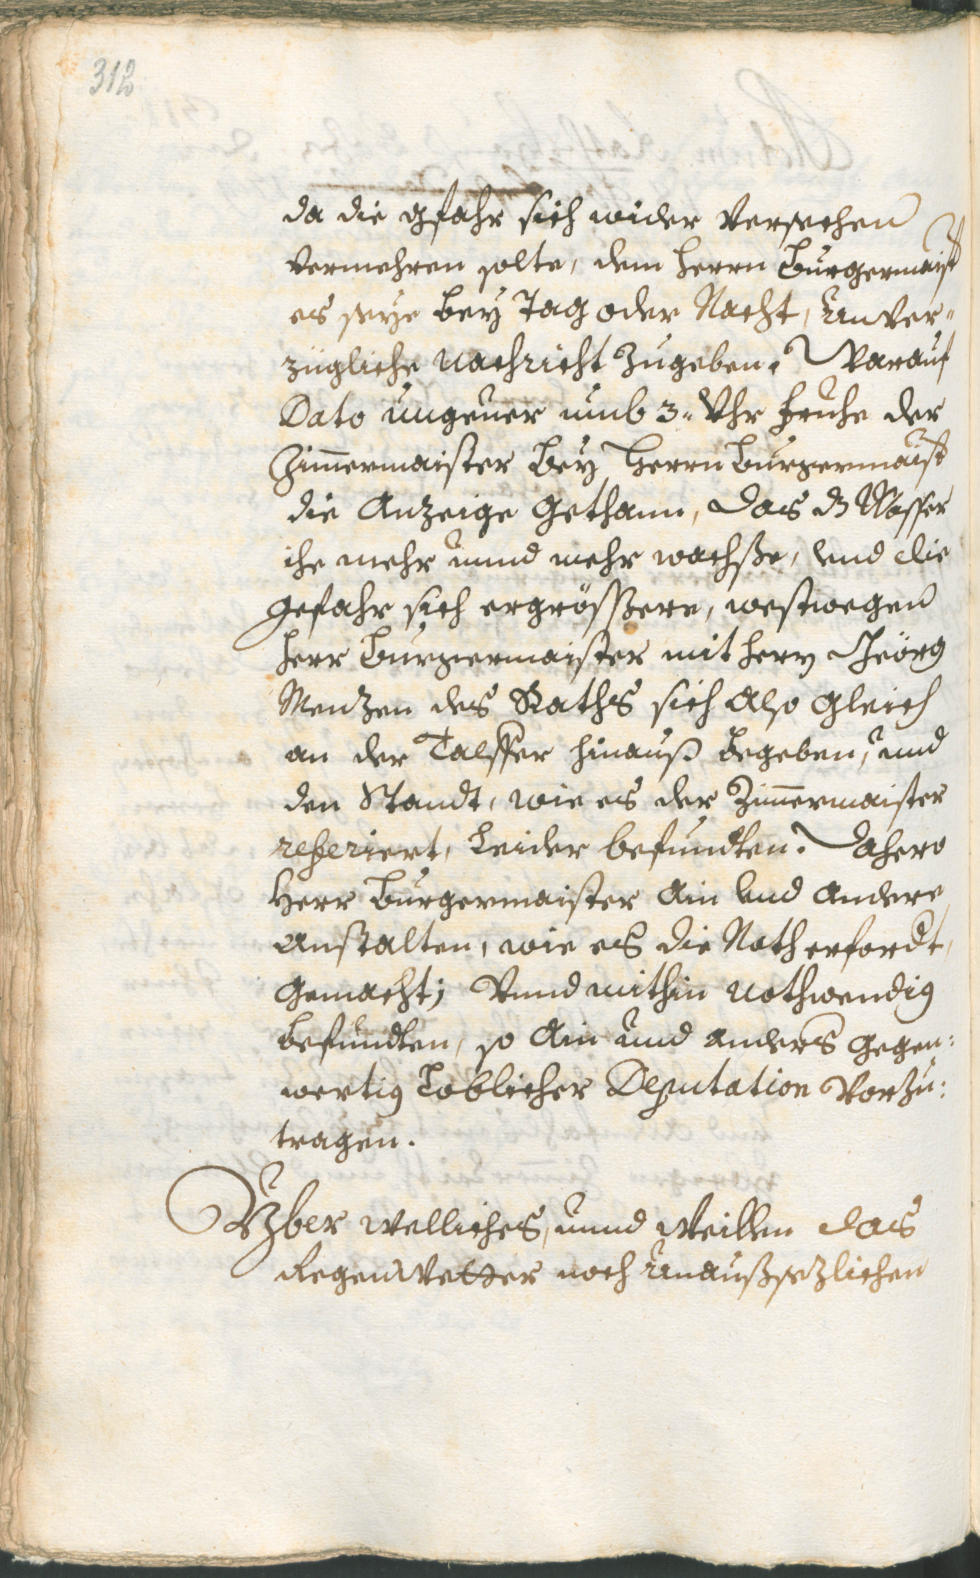 312
da die gfahr sich wider versechen
vermehren solte, dem herrn Burgermaist
es seye bey Tag oder Nacht, unver-
zügliche Nachricht zugeben. Warauf
Dato ungeuer umb 3. Uhr fruhe der
Zimermaister bey Herrn Burgermaist
die Anzeige gethann, das dz Wasser
ihe mehr unnd mehr wachße, und die
gefahr sich ergrössere, westwegen
herr Burgermaister mit herrn Georg
Menzen des Raths sich also gleich
an der Talffer hinauß begeben, und
den Standt, wie es der Zimermaister
referiert, leider befundten. Dahero
Herr Burgermaister ain und andere
anstalten, wie es die Noth erfordt,
gemacht; Vnnd mithin nothwendig
befundten, so ain und anders gegen:
wertig Loblicher Deputation Vorzu:
tragen.
Vber welliches, unnd Weillen das
Regenwetter noch unaußsezlichen